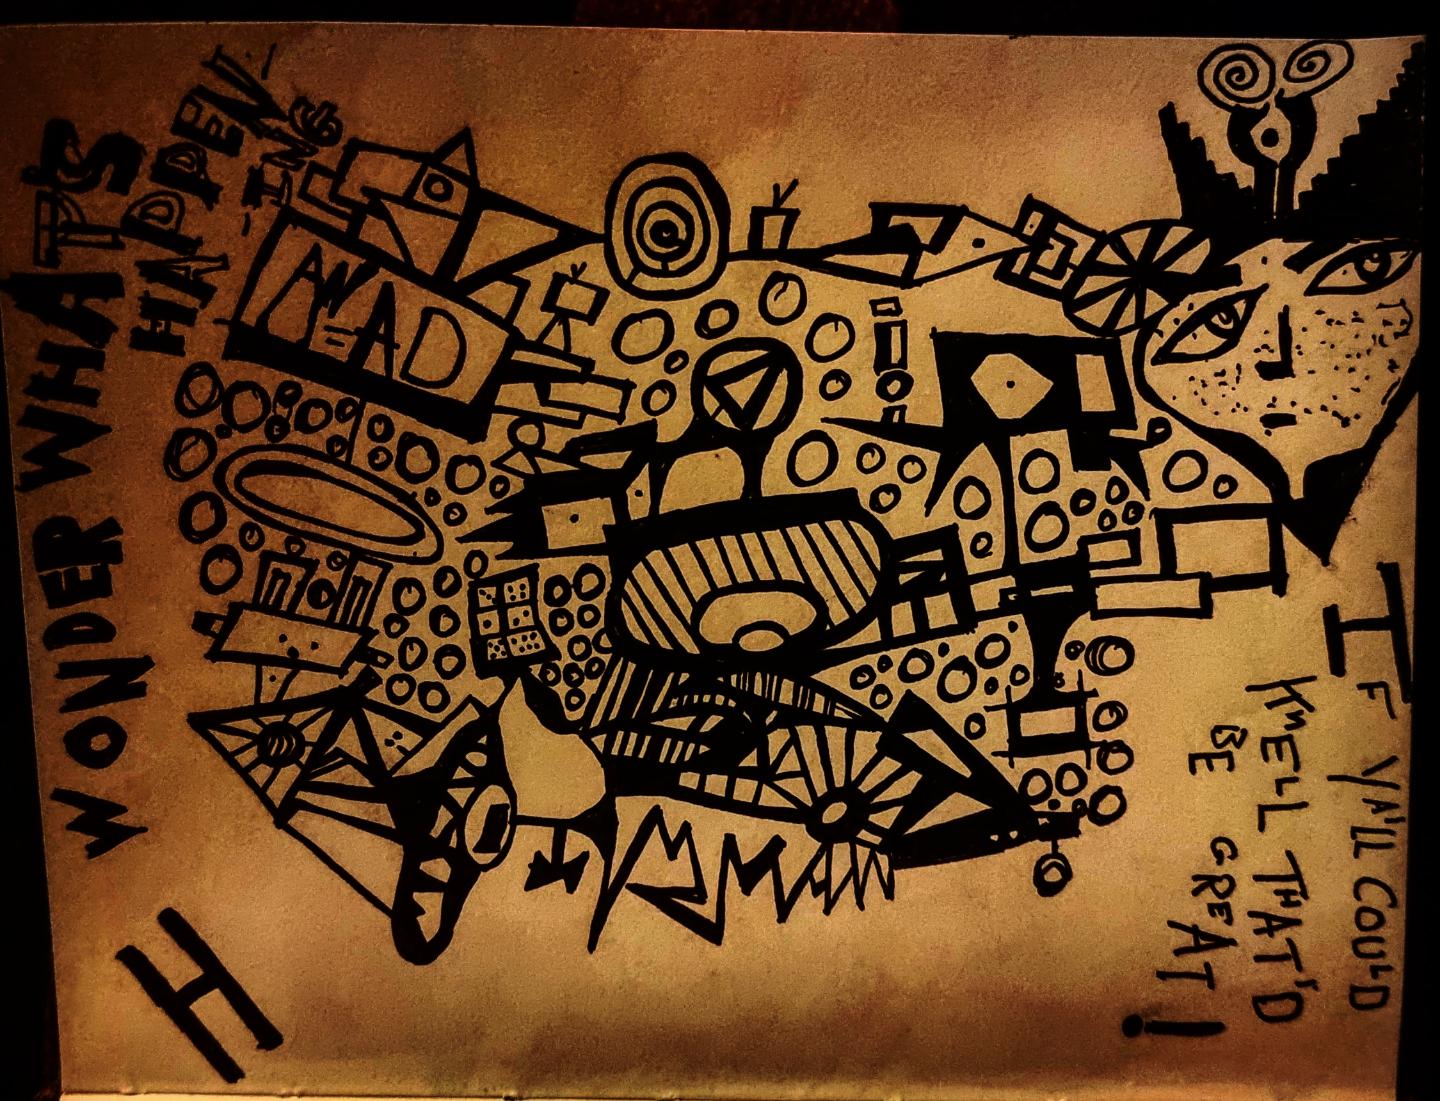 I WONDER WHAT'S
HAPPEN-
-ING
IF YA'LL COULD
KWELL THAT'D
BE GREAT!